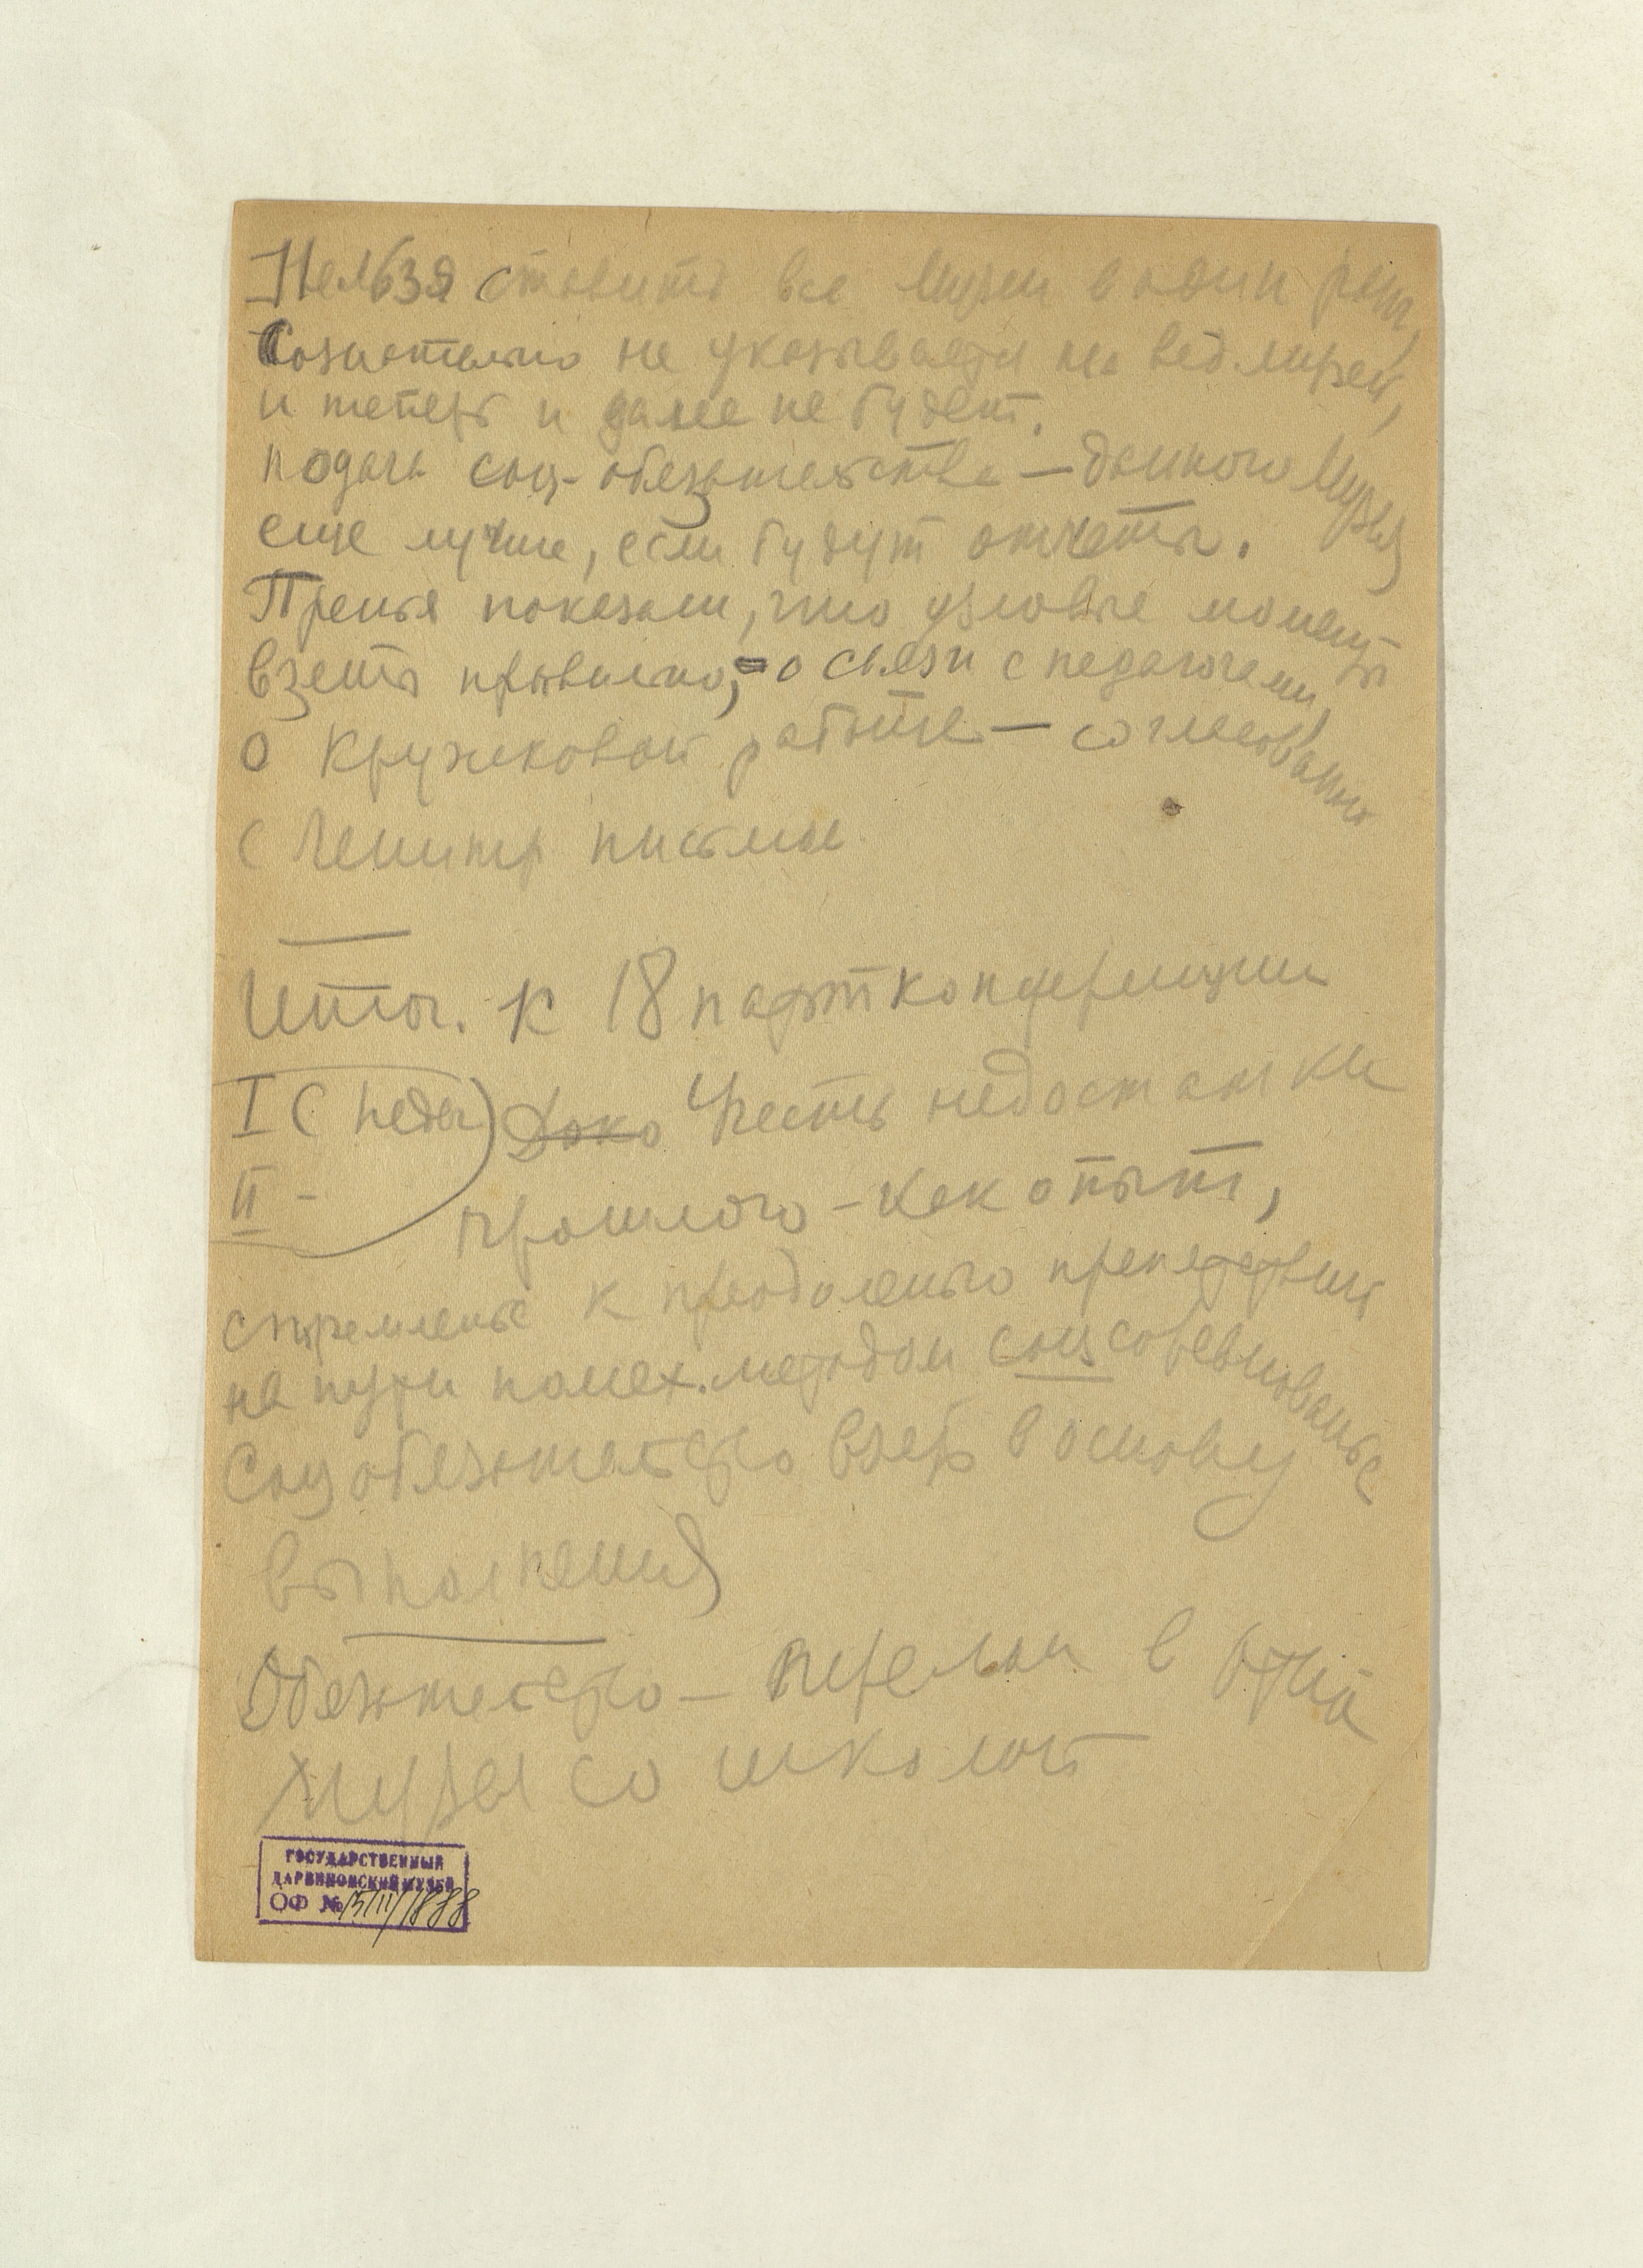 Нельзя ставить все музеи в один ранг,
Сознательно не указывается на вед. музеи,
и теперь и далее не будет.
подача соц-обязательства — данного Музея
еще лучше, если будут отчеты.
Пренья показали, что узловые моменты
взяты правильно, о связи с педагогами,
о Кружковой работе — согласованно
с Ленингр письма
Итог. к 18 партконференции
I (педа) Учесть недостатки
II - прошлого - как опыт,
стремленье к преодоленью препятствий
на пути помех. методом соцсоревнованье
Соцобязательство взять в основу
выполнения
Обязательство — в
музея со школой
ГОСУДАРСТВЕННЫЙ
ДАРВИНОВСКИЙ МУЗЕЙ
ОФ №